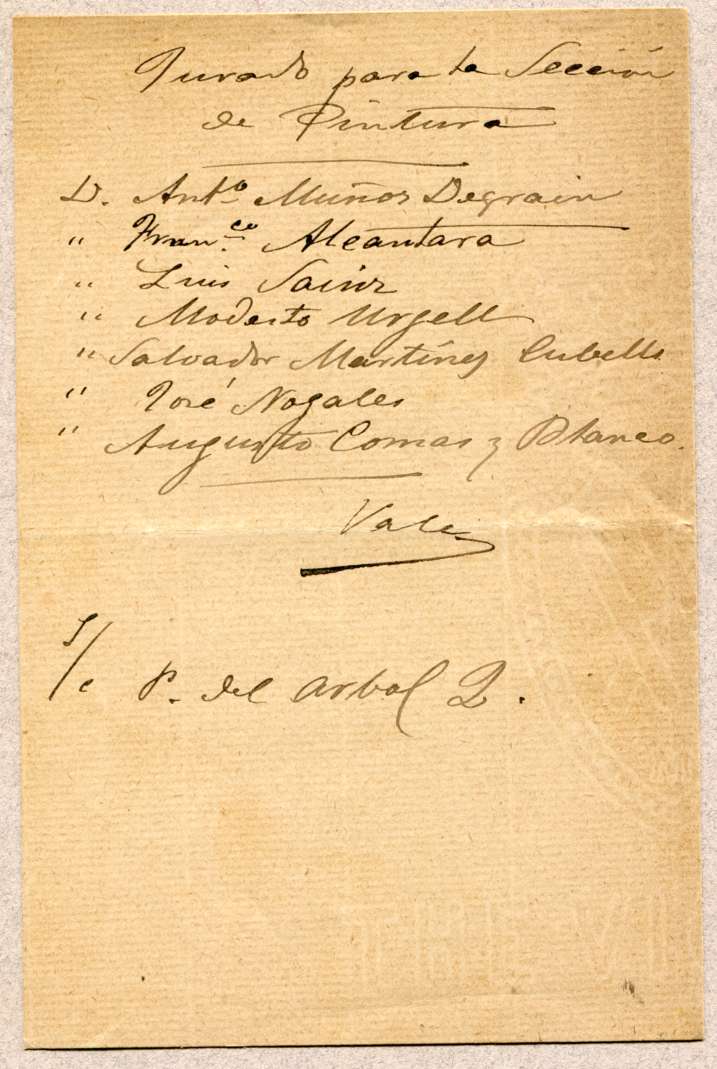 Jurado para la Sección
de Pintura
D. Antº Muñoz Degrain
" Fran.co Alcantara
" Luis Sainz
" Modesto Urgell
" Salvador Martínez Cubells
" José Nogales
" Augusto Comas y Blanco.
Vale
S/c P. del arbol 2.